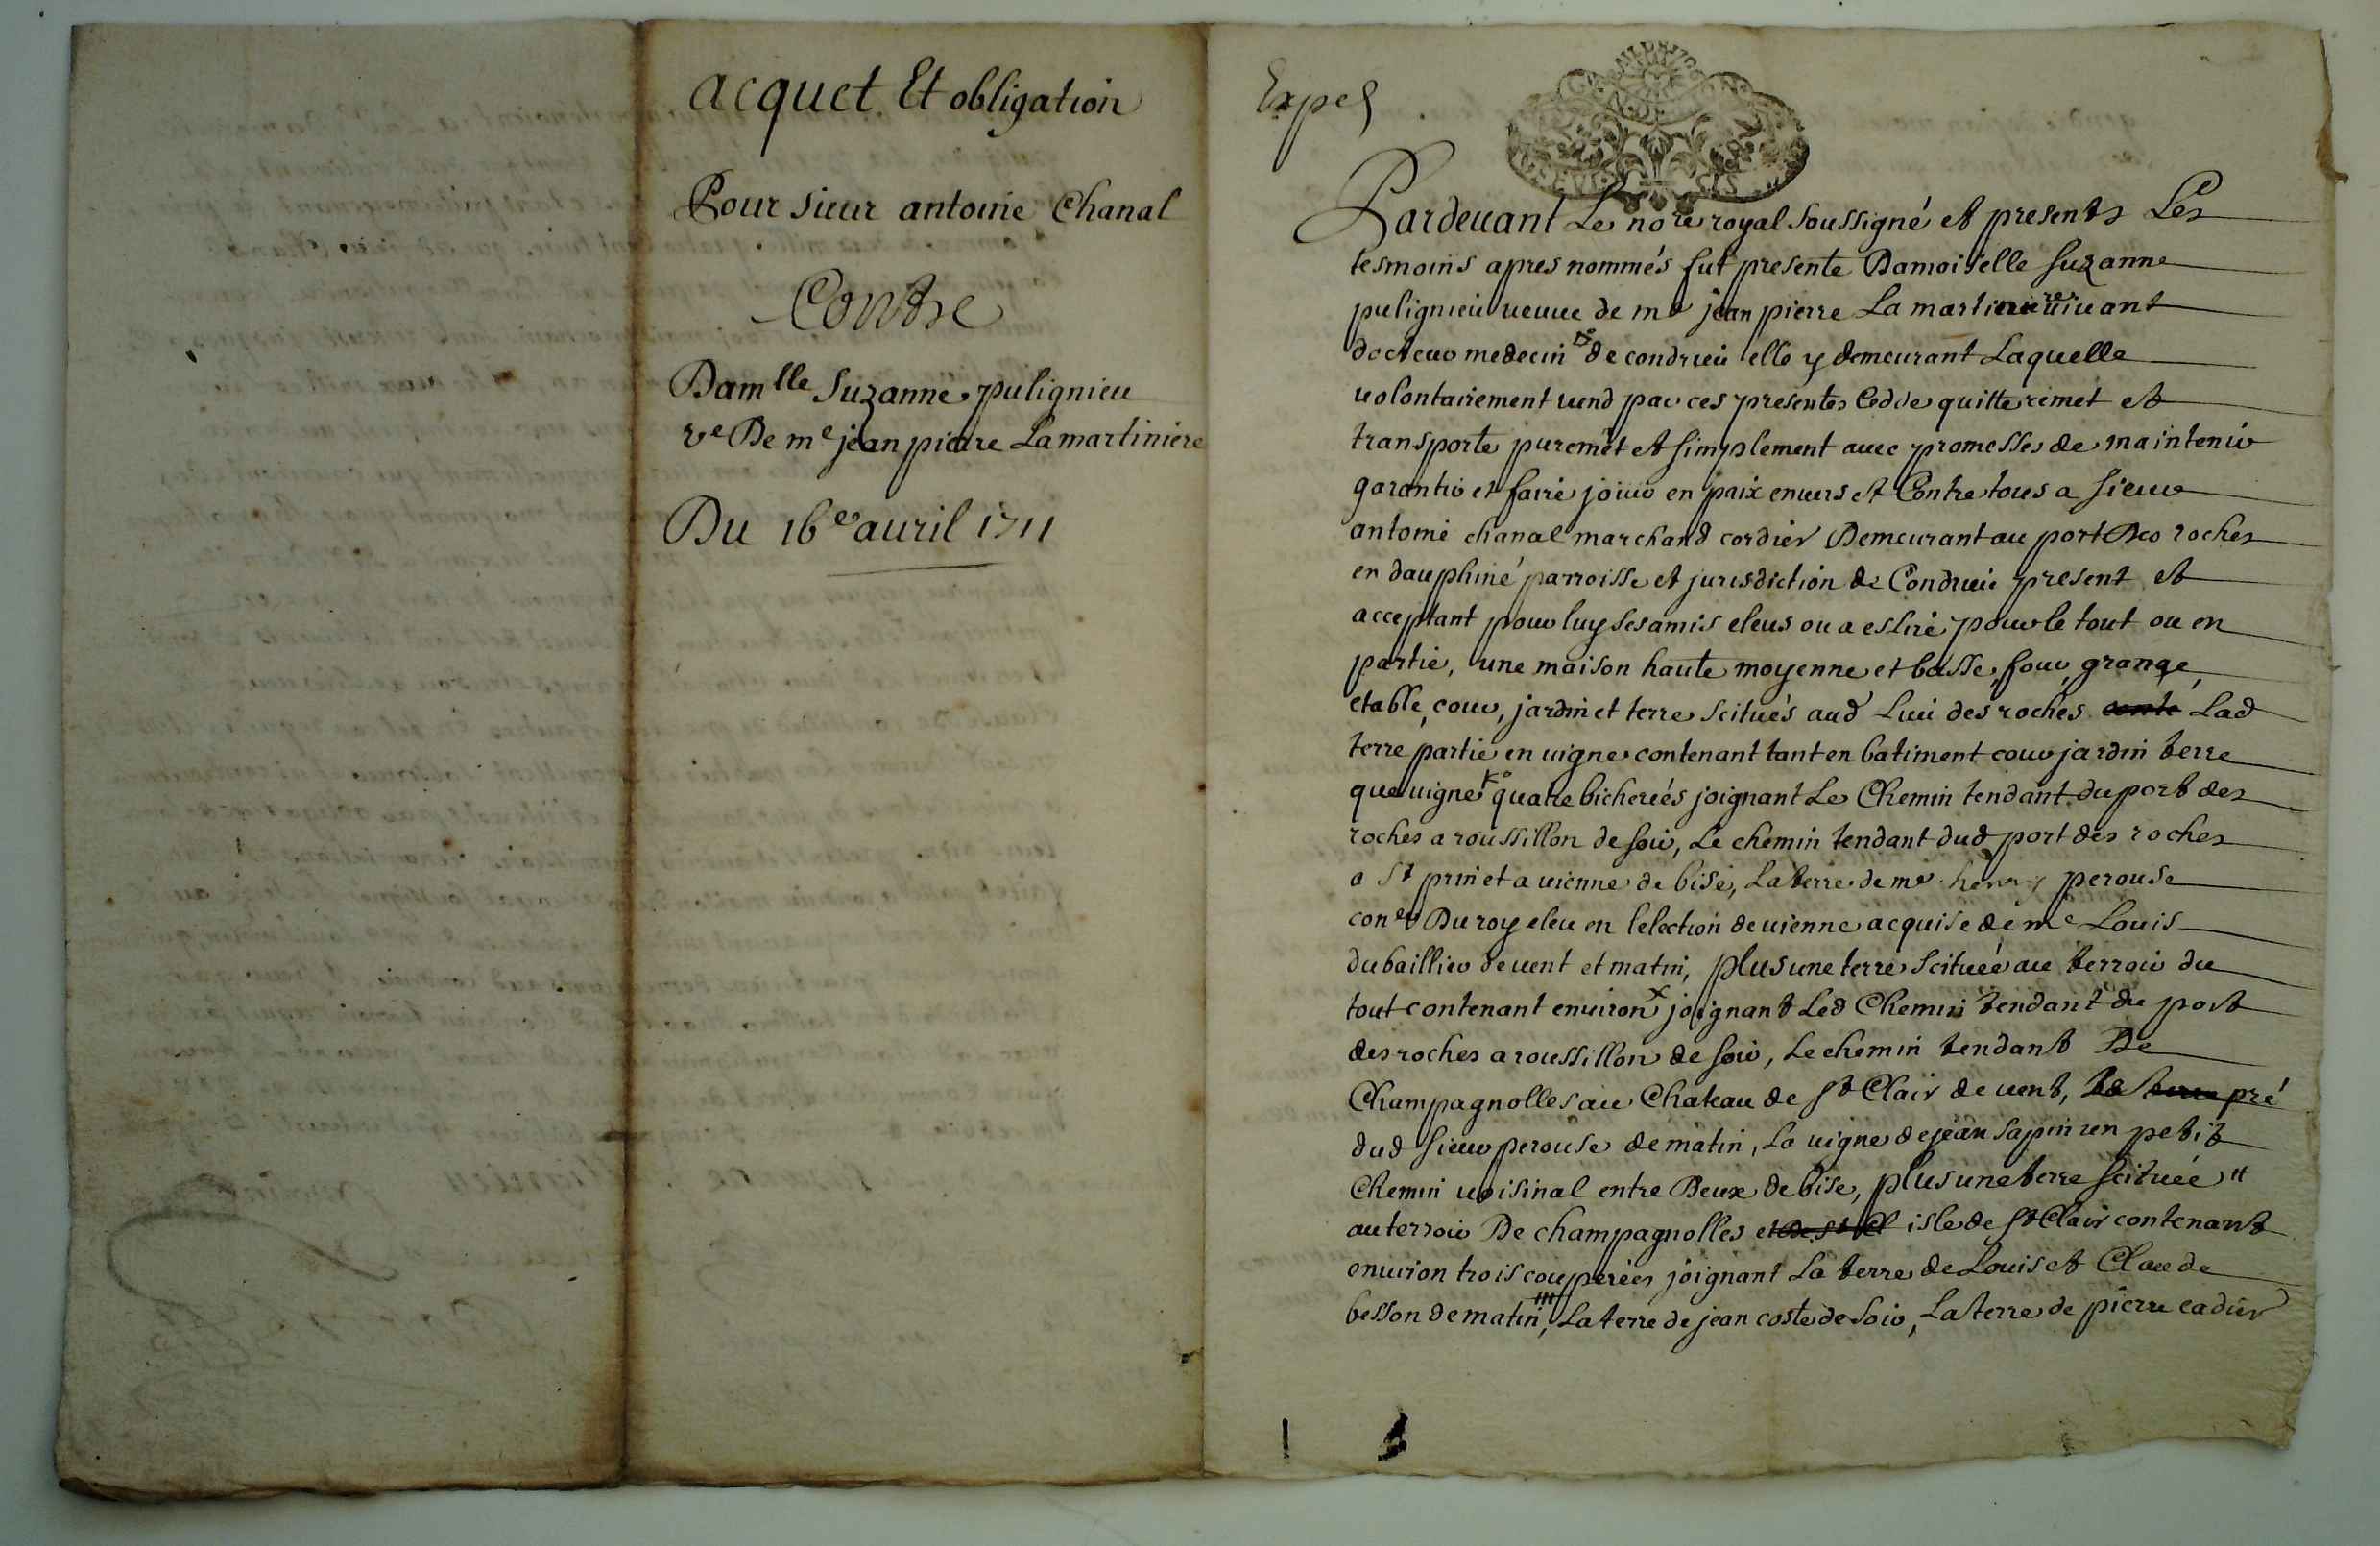 acquet Et obligation
Pour sieur antoine Chanal
Contre
Dam.lle Suzanne pulignieu
ve De me jean pierre Lamartiniere
Du 16e auril 1711
Exped
Pardeuant Le no.re royal soussigné et presents Les
tesmoins apres nommés fut presente Damoiselle suzanne
pulignieu ueuue de me jean pierre La martiniere uiuant
docteur medecin de condrieu elle y demeurant Laquelle
uolontairement uend par ces presentes Cedde quitte remet et
transporte puremēt et simplement auec promesses de maintenir
garantir et faire jouir en paix enuers et Contre tous a sieur
antoine chanal marchand cordier Demeurant au port Des roches
en dauphiné parroisse et jurisdiction de Condrieu present et
acceptant pour luy ses amis eleus ou a eslire pour le tout ou en
partie, une maison haute moyenne et basse, four, grange,
etable, cour, jardin et terre scitués aud Lieu des roches Lad
terre partie en uigne contenant tant en batiment cour jardin terre
que uigne quatre bicherées joignant Le Chemin tendant du port des
roches a roussillon de soir, Le chemin tendant dud port des roches
a St prin et a uienne de bise, La terre de me henry perouse
coner Du roy eleu en lelection de uienne acquise de me Louis
dubaillier de uent et matin, plus une terre scituée au terroir du
tout contenant enuiron joignant Led Chemin tendant du port
des roches a roussillon de soir, Le chemin tendant De
Champagnolles au Chateau de St Clair de uent, pré
dud sieur perouse de matin, La uigne de jean sapin un petit
Chemin uoisinal entre Deux de bise, plus une terre scituée
au terroir De champagnolles isle de St Clair contenant
enuiron trois couperées joignant La terre de Louis et Claude
besson de matin, La terre de jean coste de soir, La terre de pierre cadier